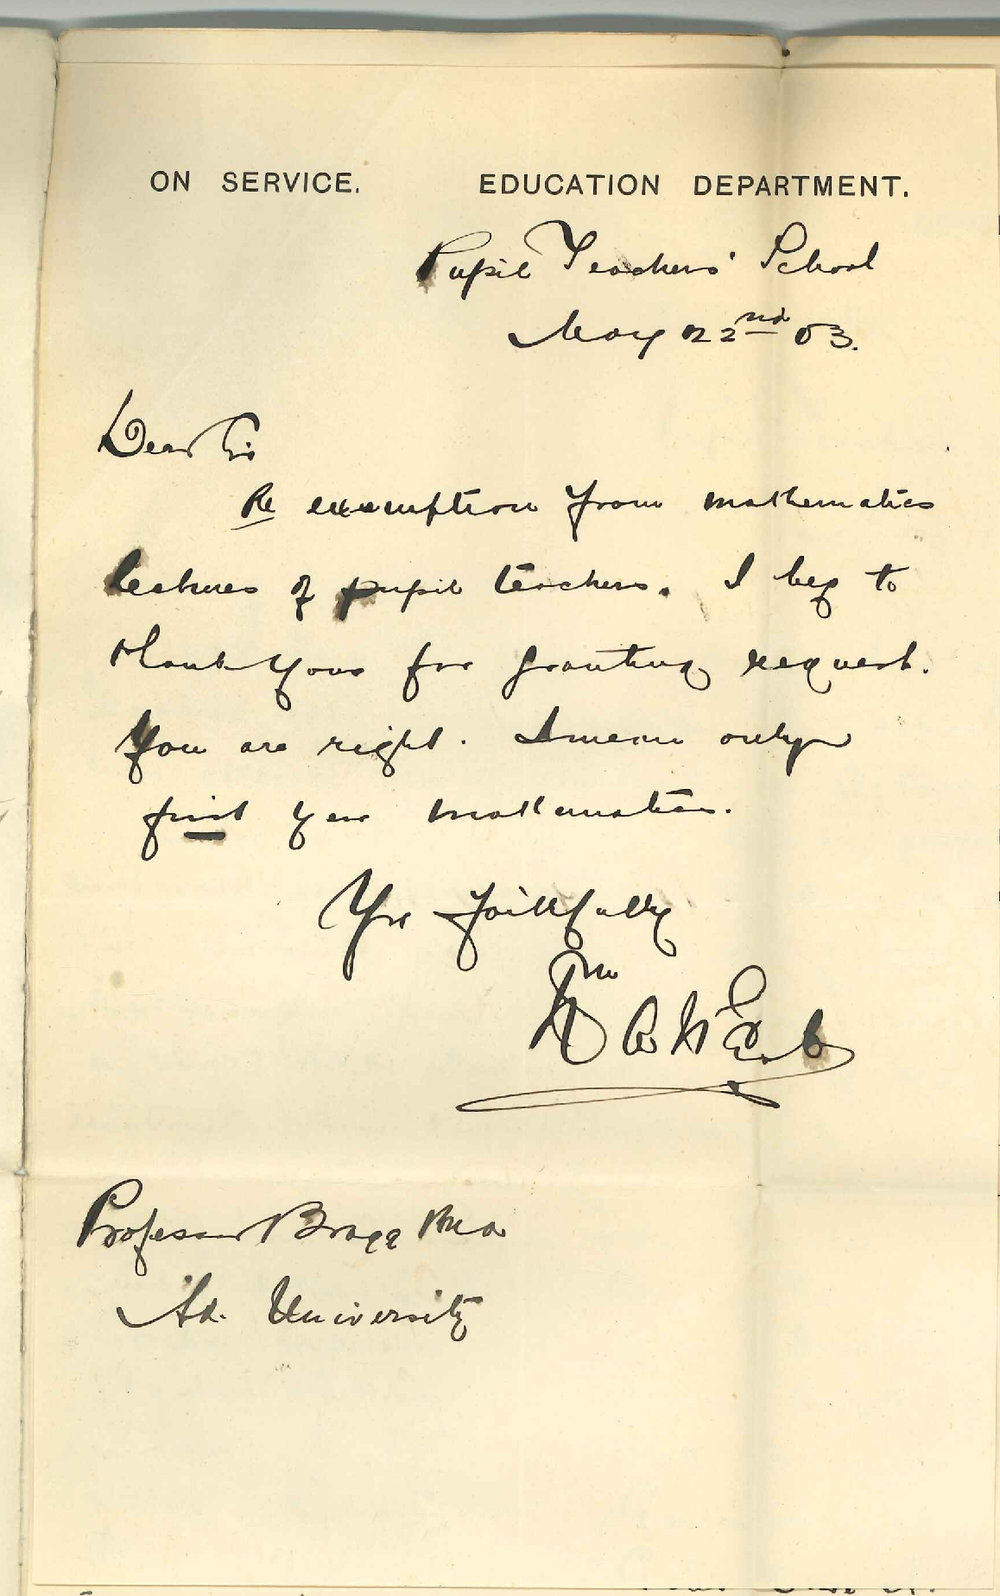 ON SERVICE. EDUCATION DEPARTMENT.
Pupil Teachers' School
May 22nd 03.
Dear Sir
Re exemption from mathematics
lectures of pupil teachers. I beg to
thank you for granting request.
You are right. I mean only
first year mathematics.
Yrs faithfully
Professor Bragg M.A.
Ad. University